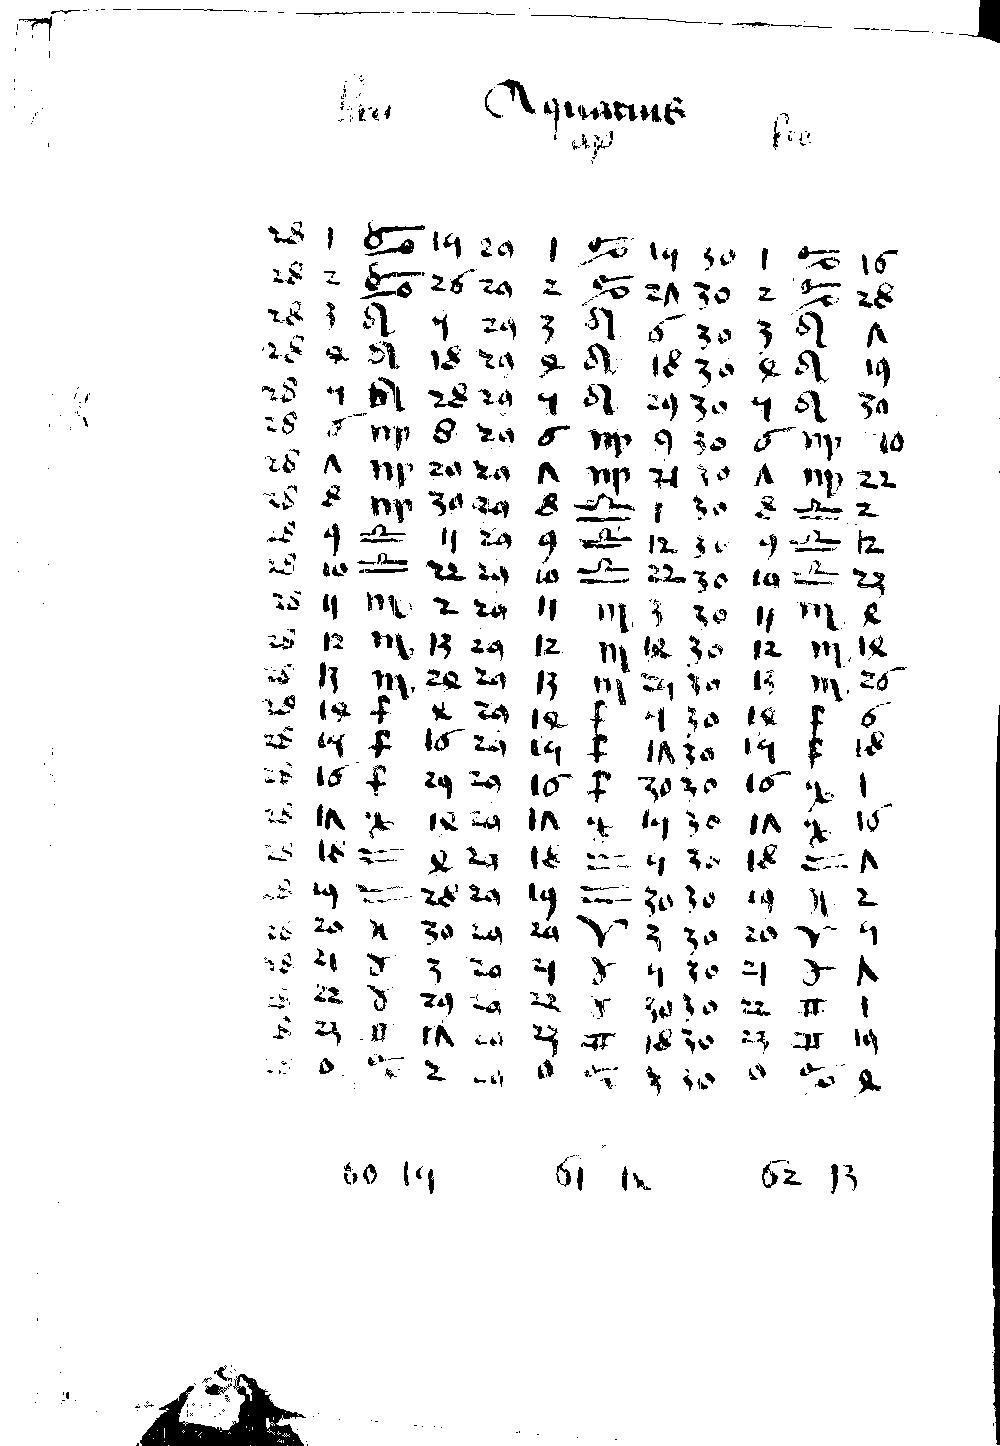 Aquarius
28 1 ♋ 15 29 1 ♋ 15 30 1 ♋ 16
28 2 ♋ 26 29 2 ♋ 27 30 2 ♋ 28
28 3 ♌ 5 29 3 ♌ 6 30 3 ♌ 7
28 4 ♌ 18 29 4 ♌ 18 30 4 ♌ 19
28 5 ♌ 28 29 5 ♌ 29 30 5 ♌ 30
28 6 ♍ 8 29 6 ♍ 9 30 6 ♍ 10
28 7 ♍ 20 29 7 ♍ 21 30 7 ♍ 22
28 8 ♍ 30 29 8 ♎ 1 30 8 ♎ 2
28 9 ♎ 11 29 9 ♎ 12 30 9 ♎ 12
28 10 ♎ 22 29 10 ♎ 22 30 10 ♎ 23
28 11 ♏ 2 29 11 ♏ 3 30 11 ♏ 4
28 12 ♏ 13 29 12 ♏ 14 30 12 ♏ 14
28 13 ♏ 24 29 13 ♏ 25 30 13 ♏ 26
28 14 ♐ 4 29 14 ♐ 5 30 14 ♐ 6
28 15 ♐ 16 29 15 ♐ 17 30 15 ♐ 18
28 16 ♐ 29 29 16 ♐ 30 30 16 ♑ 1
28 17 ♑ 14 29 17 ♑ 15 30 17 ♑ 16
28 18 ♒ 4 29 18 ♒ 5 30 18 ♒ 7
28 19 ♒ 28 29 19 ♒ 30 30 19 ♓ 2
28 20 ♓ 30 29 20 ♈ 3 30 20 ♈ 5
28 21 ♉ 3 29 21 ♉ 5 30 21 ♉ 7
28 22 ♉ 29 29 22 ♉ 30 30 22 ♊ 1
28 23 ♊ 17 29 23 ♊ 18 30 23 ♊ 19
28 0 ♋ 2 29 0 ♋ 3 30 0 ♋ 4
60 15 61 62 13